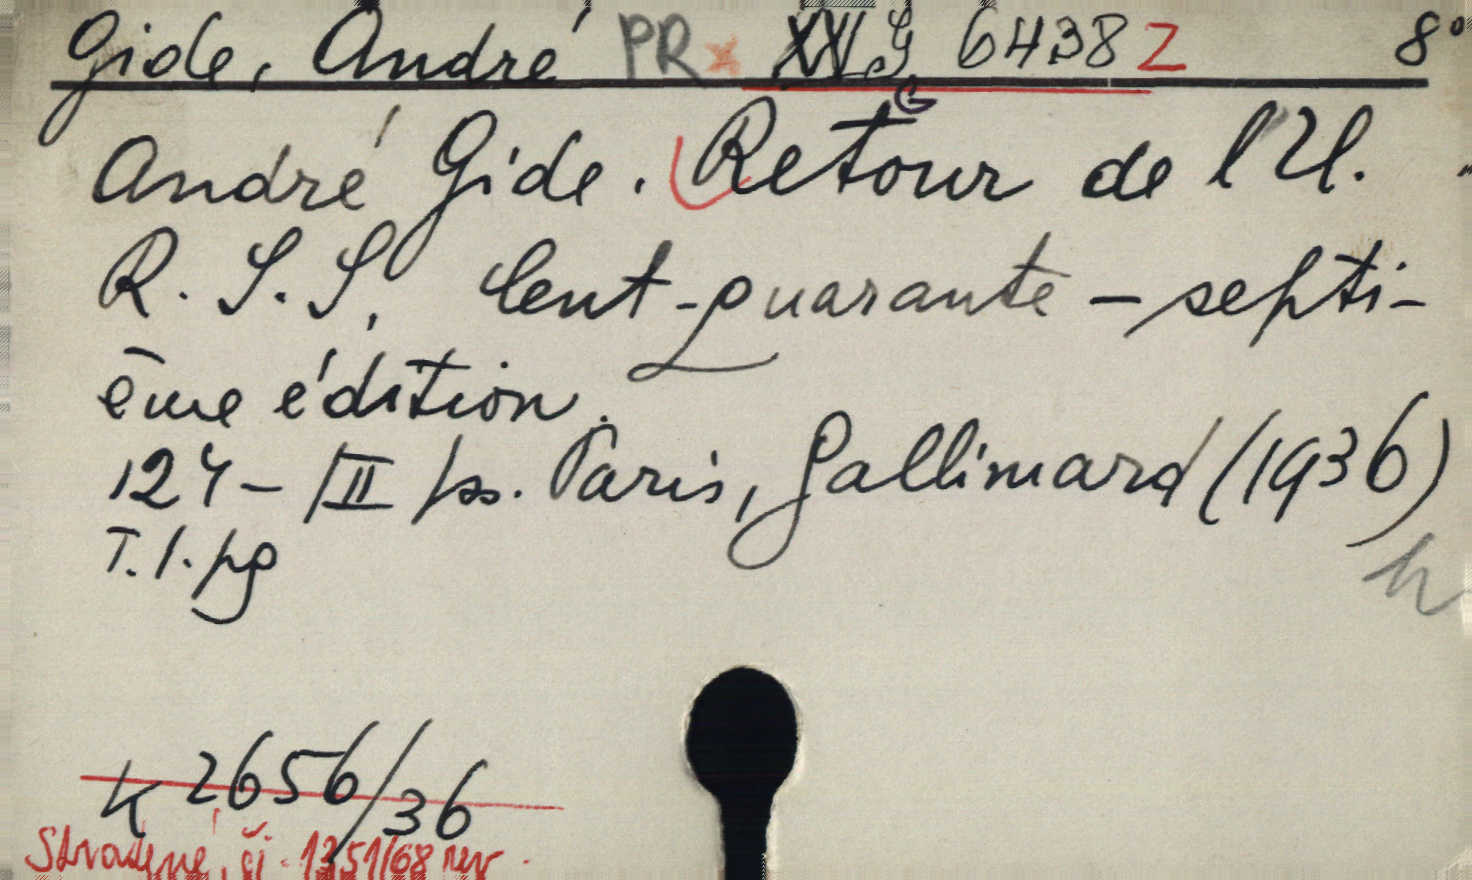 Gide, André PR x XVI G 6438 Z 8°
G
André Gide. Retour de l'U.
R. S. S. Cent-quarante-septi-
ème édition.
124 - III ss. Paris, Gallimard (1936)
T. 1. pg
h
K 2656/36
Stvrdené, čj. 1351/68 rev.